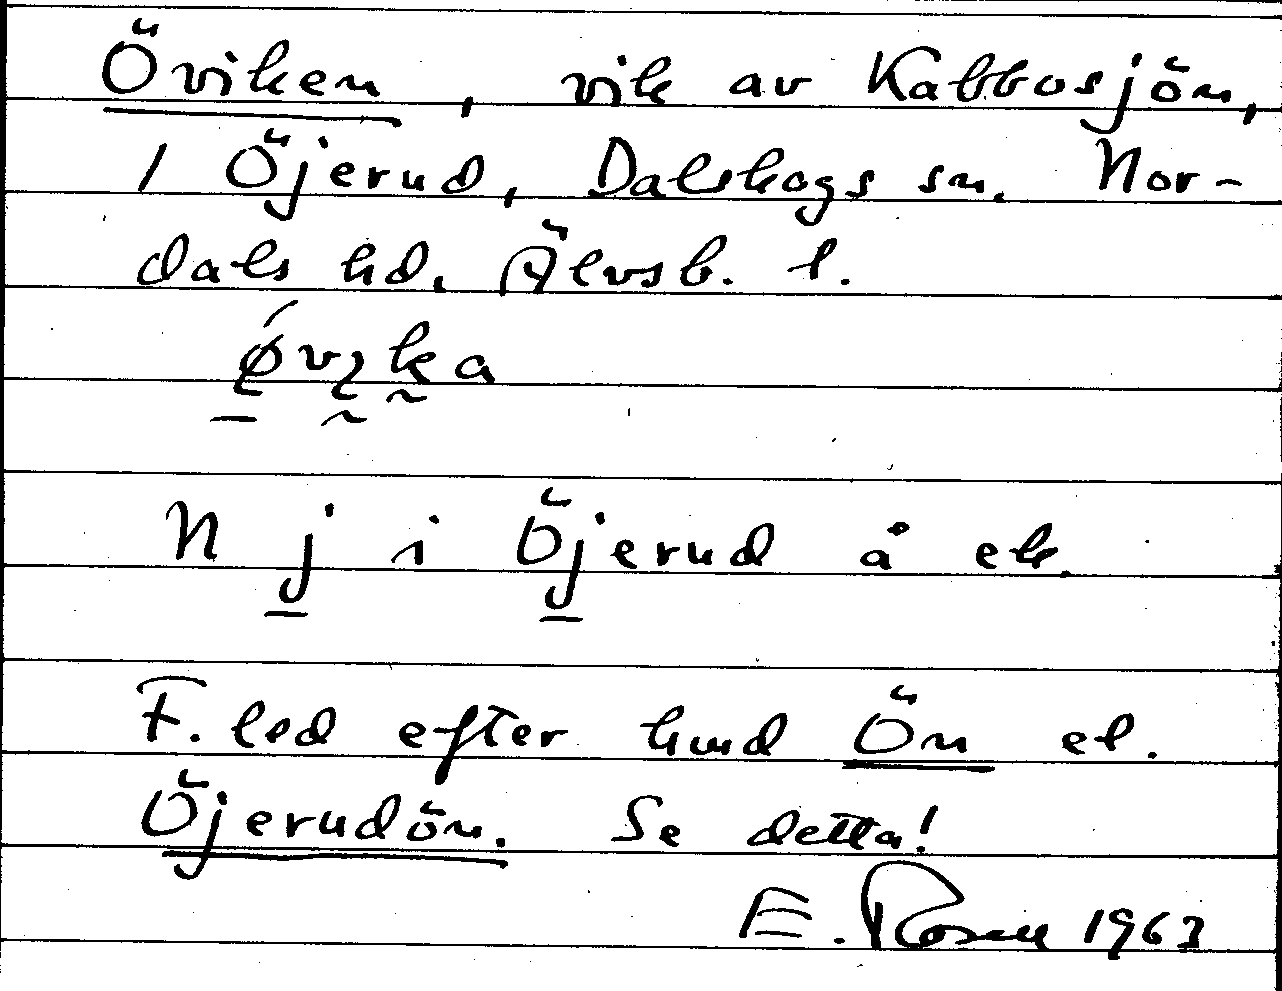 Öviken, vik av Kabbosjön,
i Öjerud, Dalskogs sn. Nor-
dals hd. Älvsb. l.
N j i Öjerud å ek.
F. led efter hmd Ön el.
Öjerudön. Se detta!
E. Rosell 1963